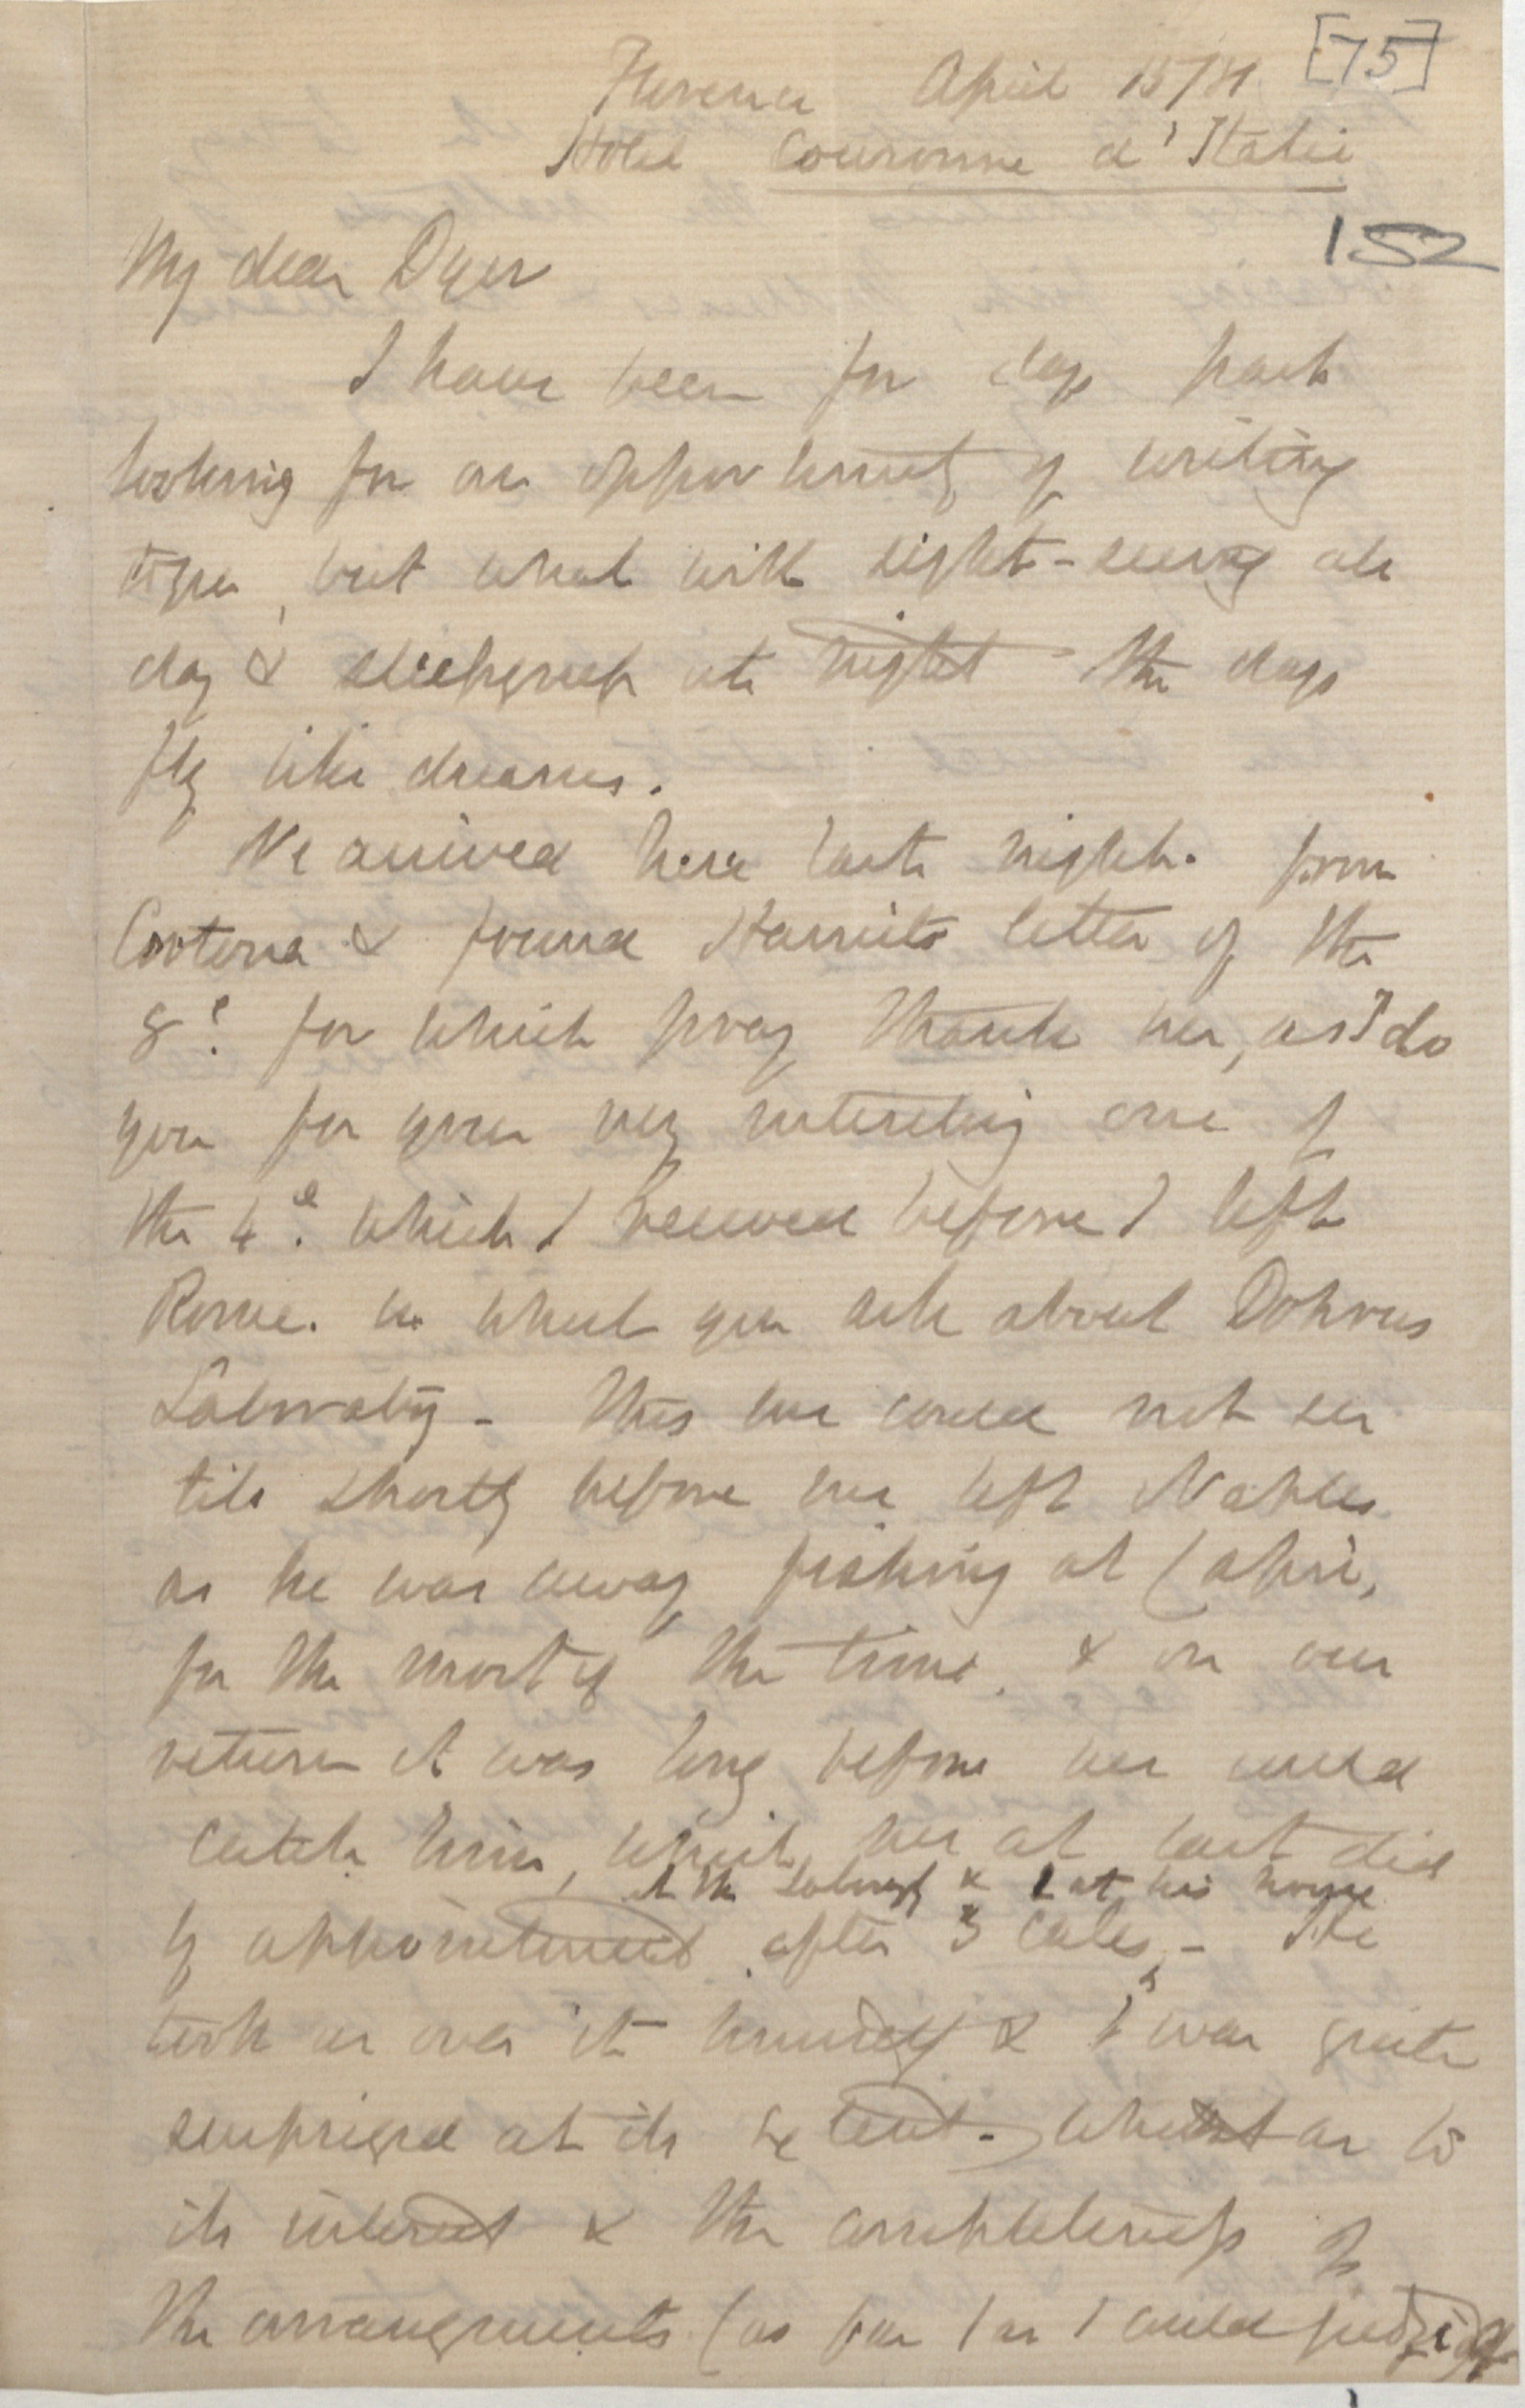 [75]
Florence April 15/81
Hotel Couronne d'Italie
152
My dear Dyer
I have been for days past
looking for an opportunity of writing
to you, but what with sight-seeing all
day & sleepiness at night the days
fly like dreams.
We arrived here last night from
Cortona & found Harriets letter of the
8th for which pray thank her, as I do
you for your very interesting one of
the 4th which I received before I left
Rome. in which you ask about Dohrns
Laboratory - This we could not see
till shortly before we left Naples
as he was away fishing at Capri,
for the most of the time, & on our
return it was long before we could
catch him, which we at last did
at the Laboraty & 1 at his house
by appointment after 3 calls - He
took us over it himself & I was quite
surprised at its extent - whilst as to
its interest & the completeness of
the arrangements (as far as I could judge